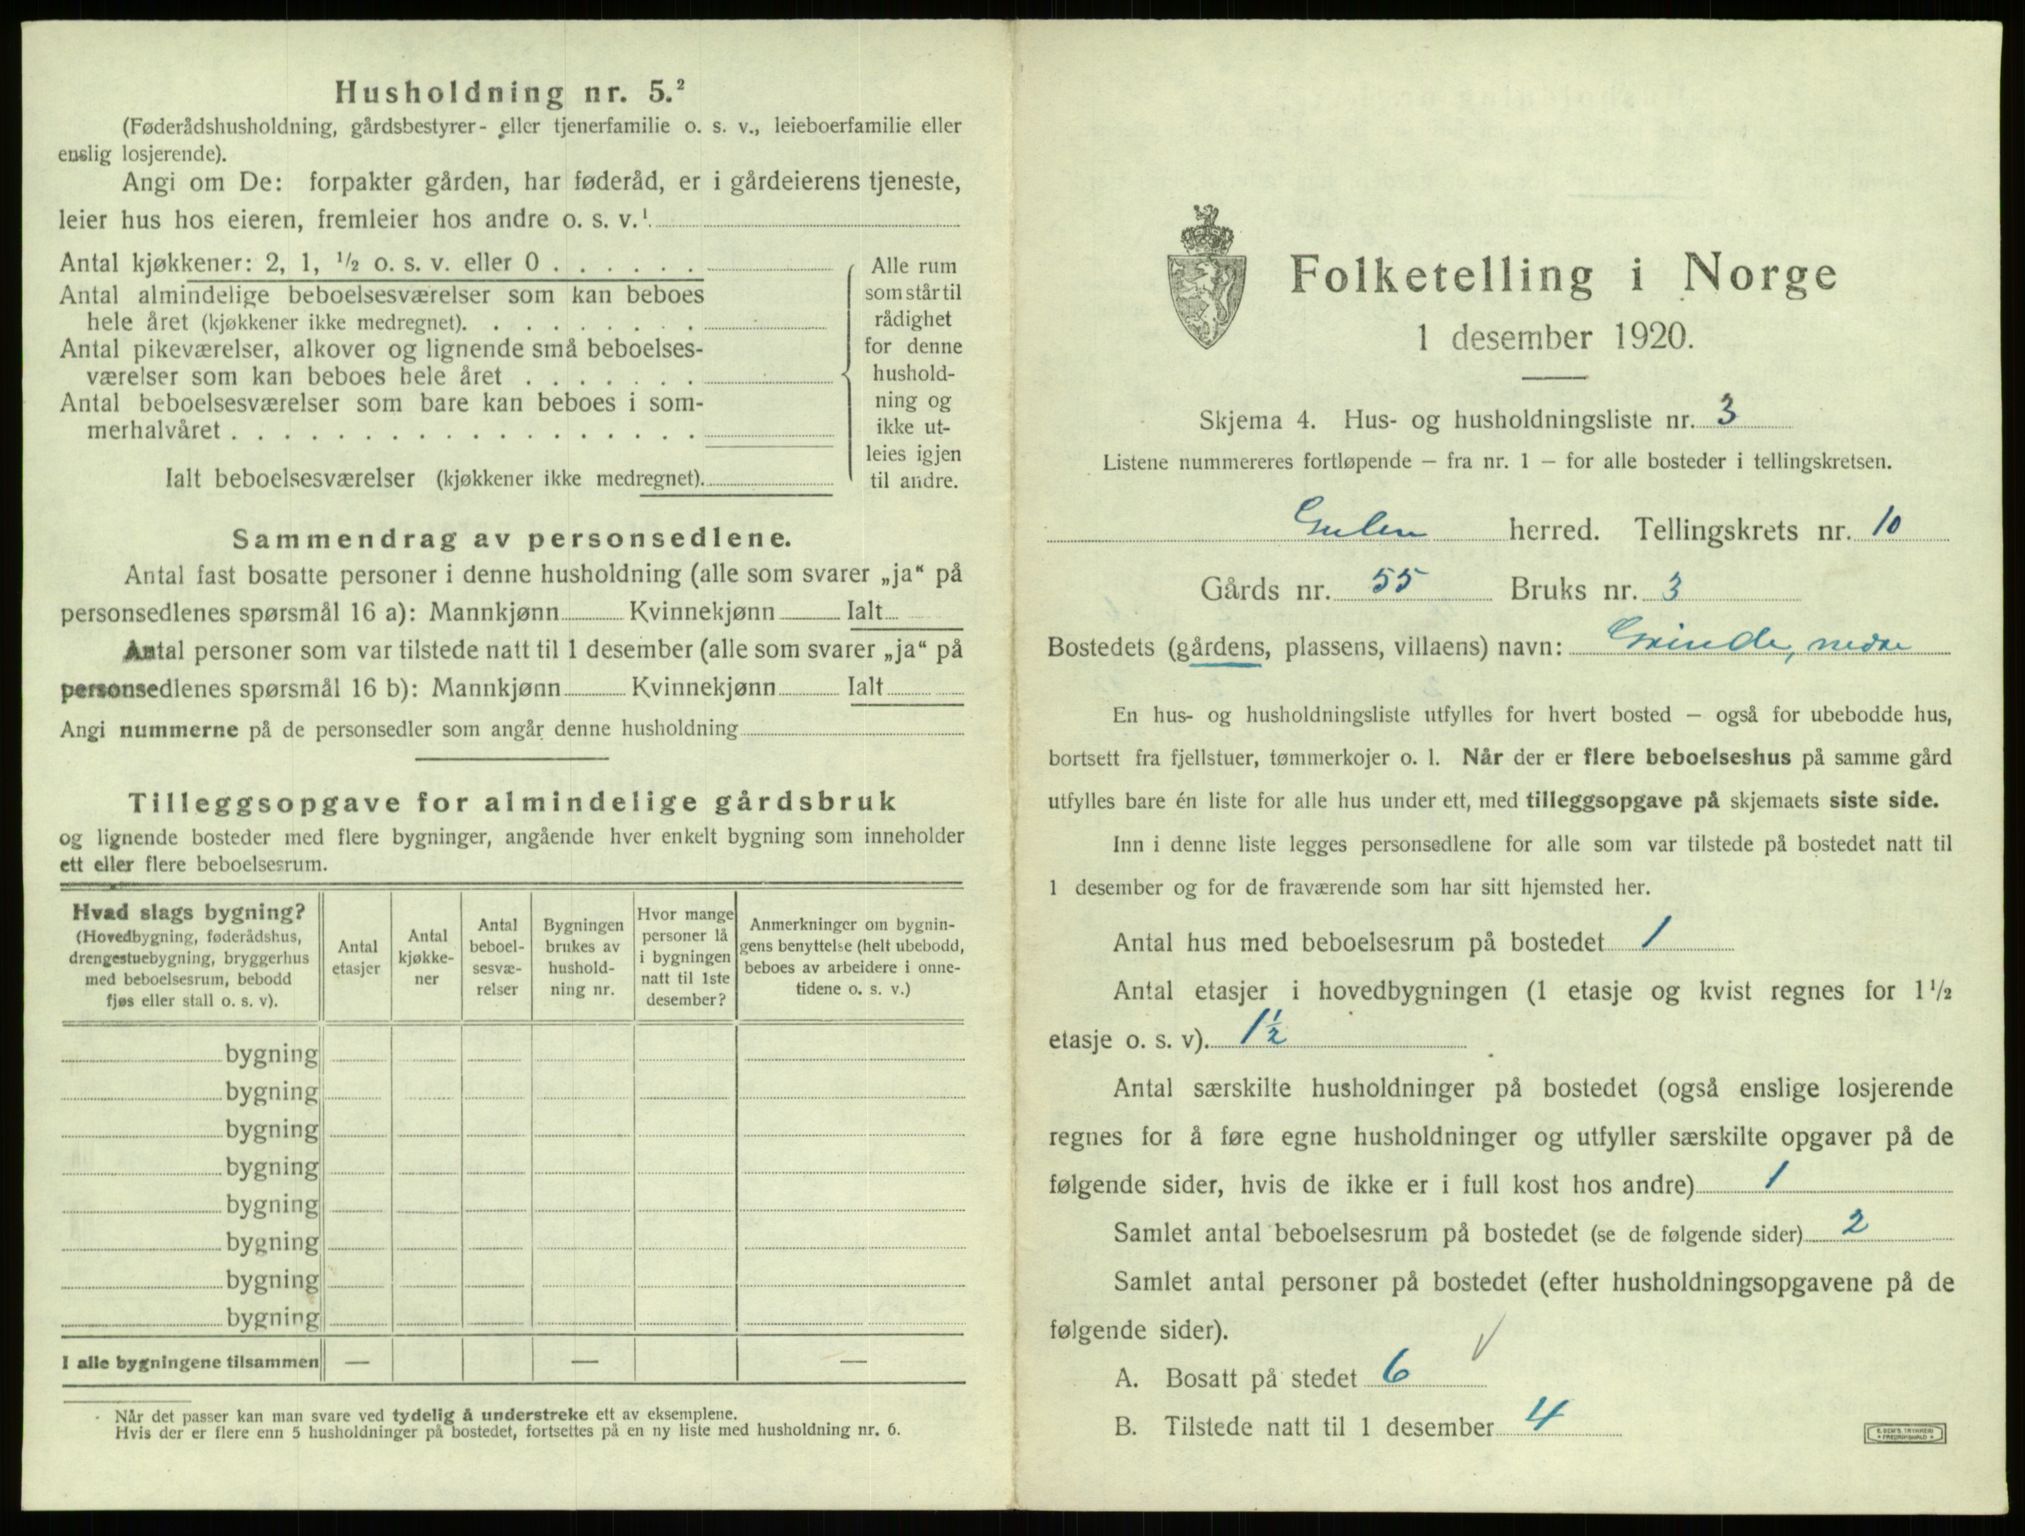 Husholdning nr. 5.²
(Føderådshusholdning, gårdsbestyrer- eller tjenerfamilie o. s. v., leieboerfamilie eller
enslig losjerende).
Angi om De: forpakter gården, har føderåd, er i gårdeierens tjeneste,
leier hus hos eieren, fremleier hos andre o. s. v.¹
Antal kjøkkener: 2, 1, ½ o. s. v. eller 0 . . . . . .
Antal almindelige beboelsesværelser som kan beboes
hele året (kjøkkener ikke medregnet). . . . . . . . .
Antal pikeværelser, alkover og lignende små beboelses-
værelser som kan beboes hele året . . . . . . .
Antal beboelsesværelser som bare kan beboes i som-
merhalvåret . . . . . . . . . . . . . . . . . .
Ialt beboelsesværelser (kjøkkener ikke medregnet).
Alle rum
som står til
rådighet
for denne
hushold-
ning og
ikke ut-
leies igjen
til andre.
Sammendrag av personsedlene.
Antal fast bosatte personer i denne husholdning (alle som svarer „ja“ på
personsedlenes spørsmål 16 a): Mannkjønn Kvinnekjønn Ialt
Antal personer som var tilstede natt til 1 desember (alle som svarer „ja“ på
personsedlenes spørsmål 16 b): Mannkjønn Kvinnekjønn Ialt
Angi nummerne på de personsedler som angår denne husholdning
Tilleggsopgave for almindelige gårdsbruk
og lignende bosteder med flere bygninger, angående hver enkelt bygning som inneholder
ett eller flere beboelsesrum.
Hvad slags bygning?
(Hovedbygning, føderådshus,
drengestuebygning, bryggerhus
med beboelsesrum, bebodd
fjøs eller stall o. s. v).
Antal
etasjer
Antal
kjøkke-
ner
Antal
beboel-
sesvæ-
relser
Bygningen
brukes av
hushold-
ning nr.
Hvor mange
personer lå
i bygningen
natt til 1ste
desember?
Anmerkninger om bygnin-
gens benyttelse (helt ubebodd,
beboes av arbeidere i onne-
tidene o. s. v.)
bygning
bygning
bygning
bygning
bygning
bygning
bygning
bygning
I alle bygningene tilsammen — — —
Når det passer kan man svare ved tydelig å understreke ett av eksemplene.
Hvis der er flere enn 5 husholdninger på bostedet, fortsettes på en ny liste med husholdning nr. 6.
Folketelling i Norge
1 desember 1920.
Skjema 4. Hus- og husholdningsliste nr. 3
Listene nummereres fortløpende – fra nr. 1 – for alle bosteder i tellingskretsen.
Gulen herred. Tellingskrets nr. 10
Gårds nr. 55 Bruks nr. 3
Bostedets (gårdens, plassens, villaens) navn: Grinde, nedre
En hus- og husholdningsliste utfylles for hvert bosted – også for ubebodde hus,
bortsett fra fjellstuer, tømmerkojer o. l. Når der er flere beboelseshus på samme gård
utfylles bare én liste for alle hus under ett, med tilleggsopgave på skjemaets siste side.
Inn i denne liste legges personsedlene for alle som var tilstede på bostedet natt til
1 desember og for de fraværende som har sitt hjemsted her.
Antal hus med beboelsesrum på bostedet 1
Antal etasjer i hovedbygningen (1 etasje og kvist regnes for 1½
etasje o. s. v). 1½
Antal særskilte husholdninger på bostedet (også enslige losjerende
regnes for å føre egne husholdninger og utfyller særskilte opgaver på de
følgende sider, hvis de ikke er i full kost hos andre) 1
Samlet antal beboelsesrum på bostedet (se de følgende sider) 2
Samlet antal personer på bostedet (efter husholdningsopgavene på de
følgende sider).
A. Bosatt på stedet 6
B. Tilstede natt til 1 desember 4